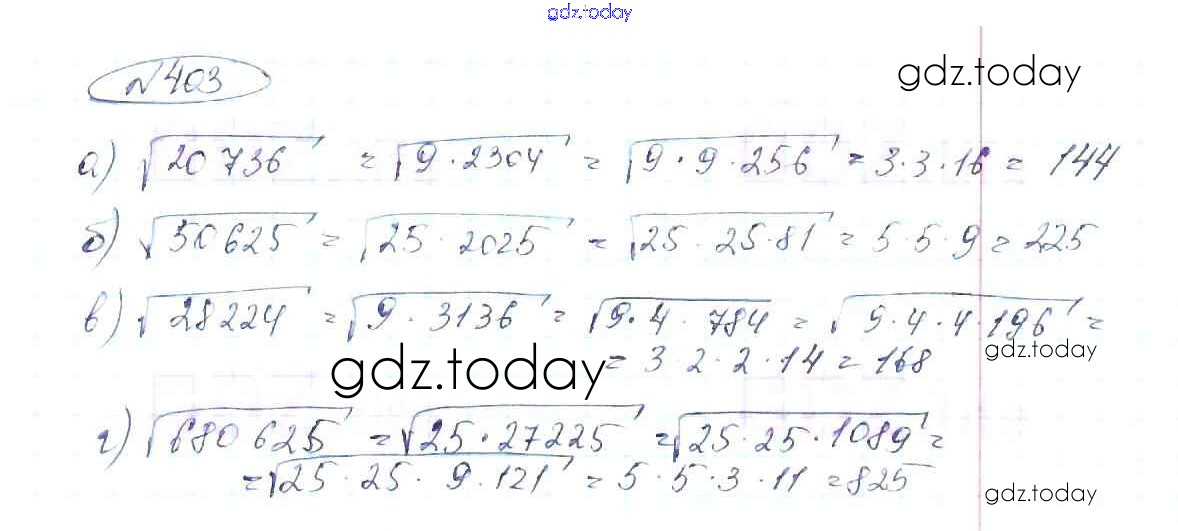 gdz.today
№403
gdz.today
а) √20736 = √9·2304 = √9·9·256 = 3·3·16 = 144
б) √50625 = √25·2025 = √25·25·81 = 5·5·9 = 225
в) √28224 = √9·3136 = √9·4·784 = √9·4·4·196 =
gdz.today
= 3·2·2·14 = 168
gdz.today
г) √680625 = √25·27225 = √25·25·1089 =
= √25·25·9·121 = 5·5·3·11 = 825
gdz.today